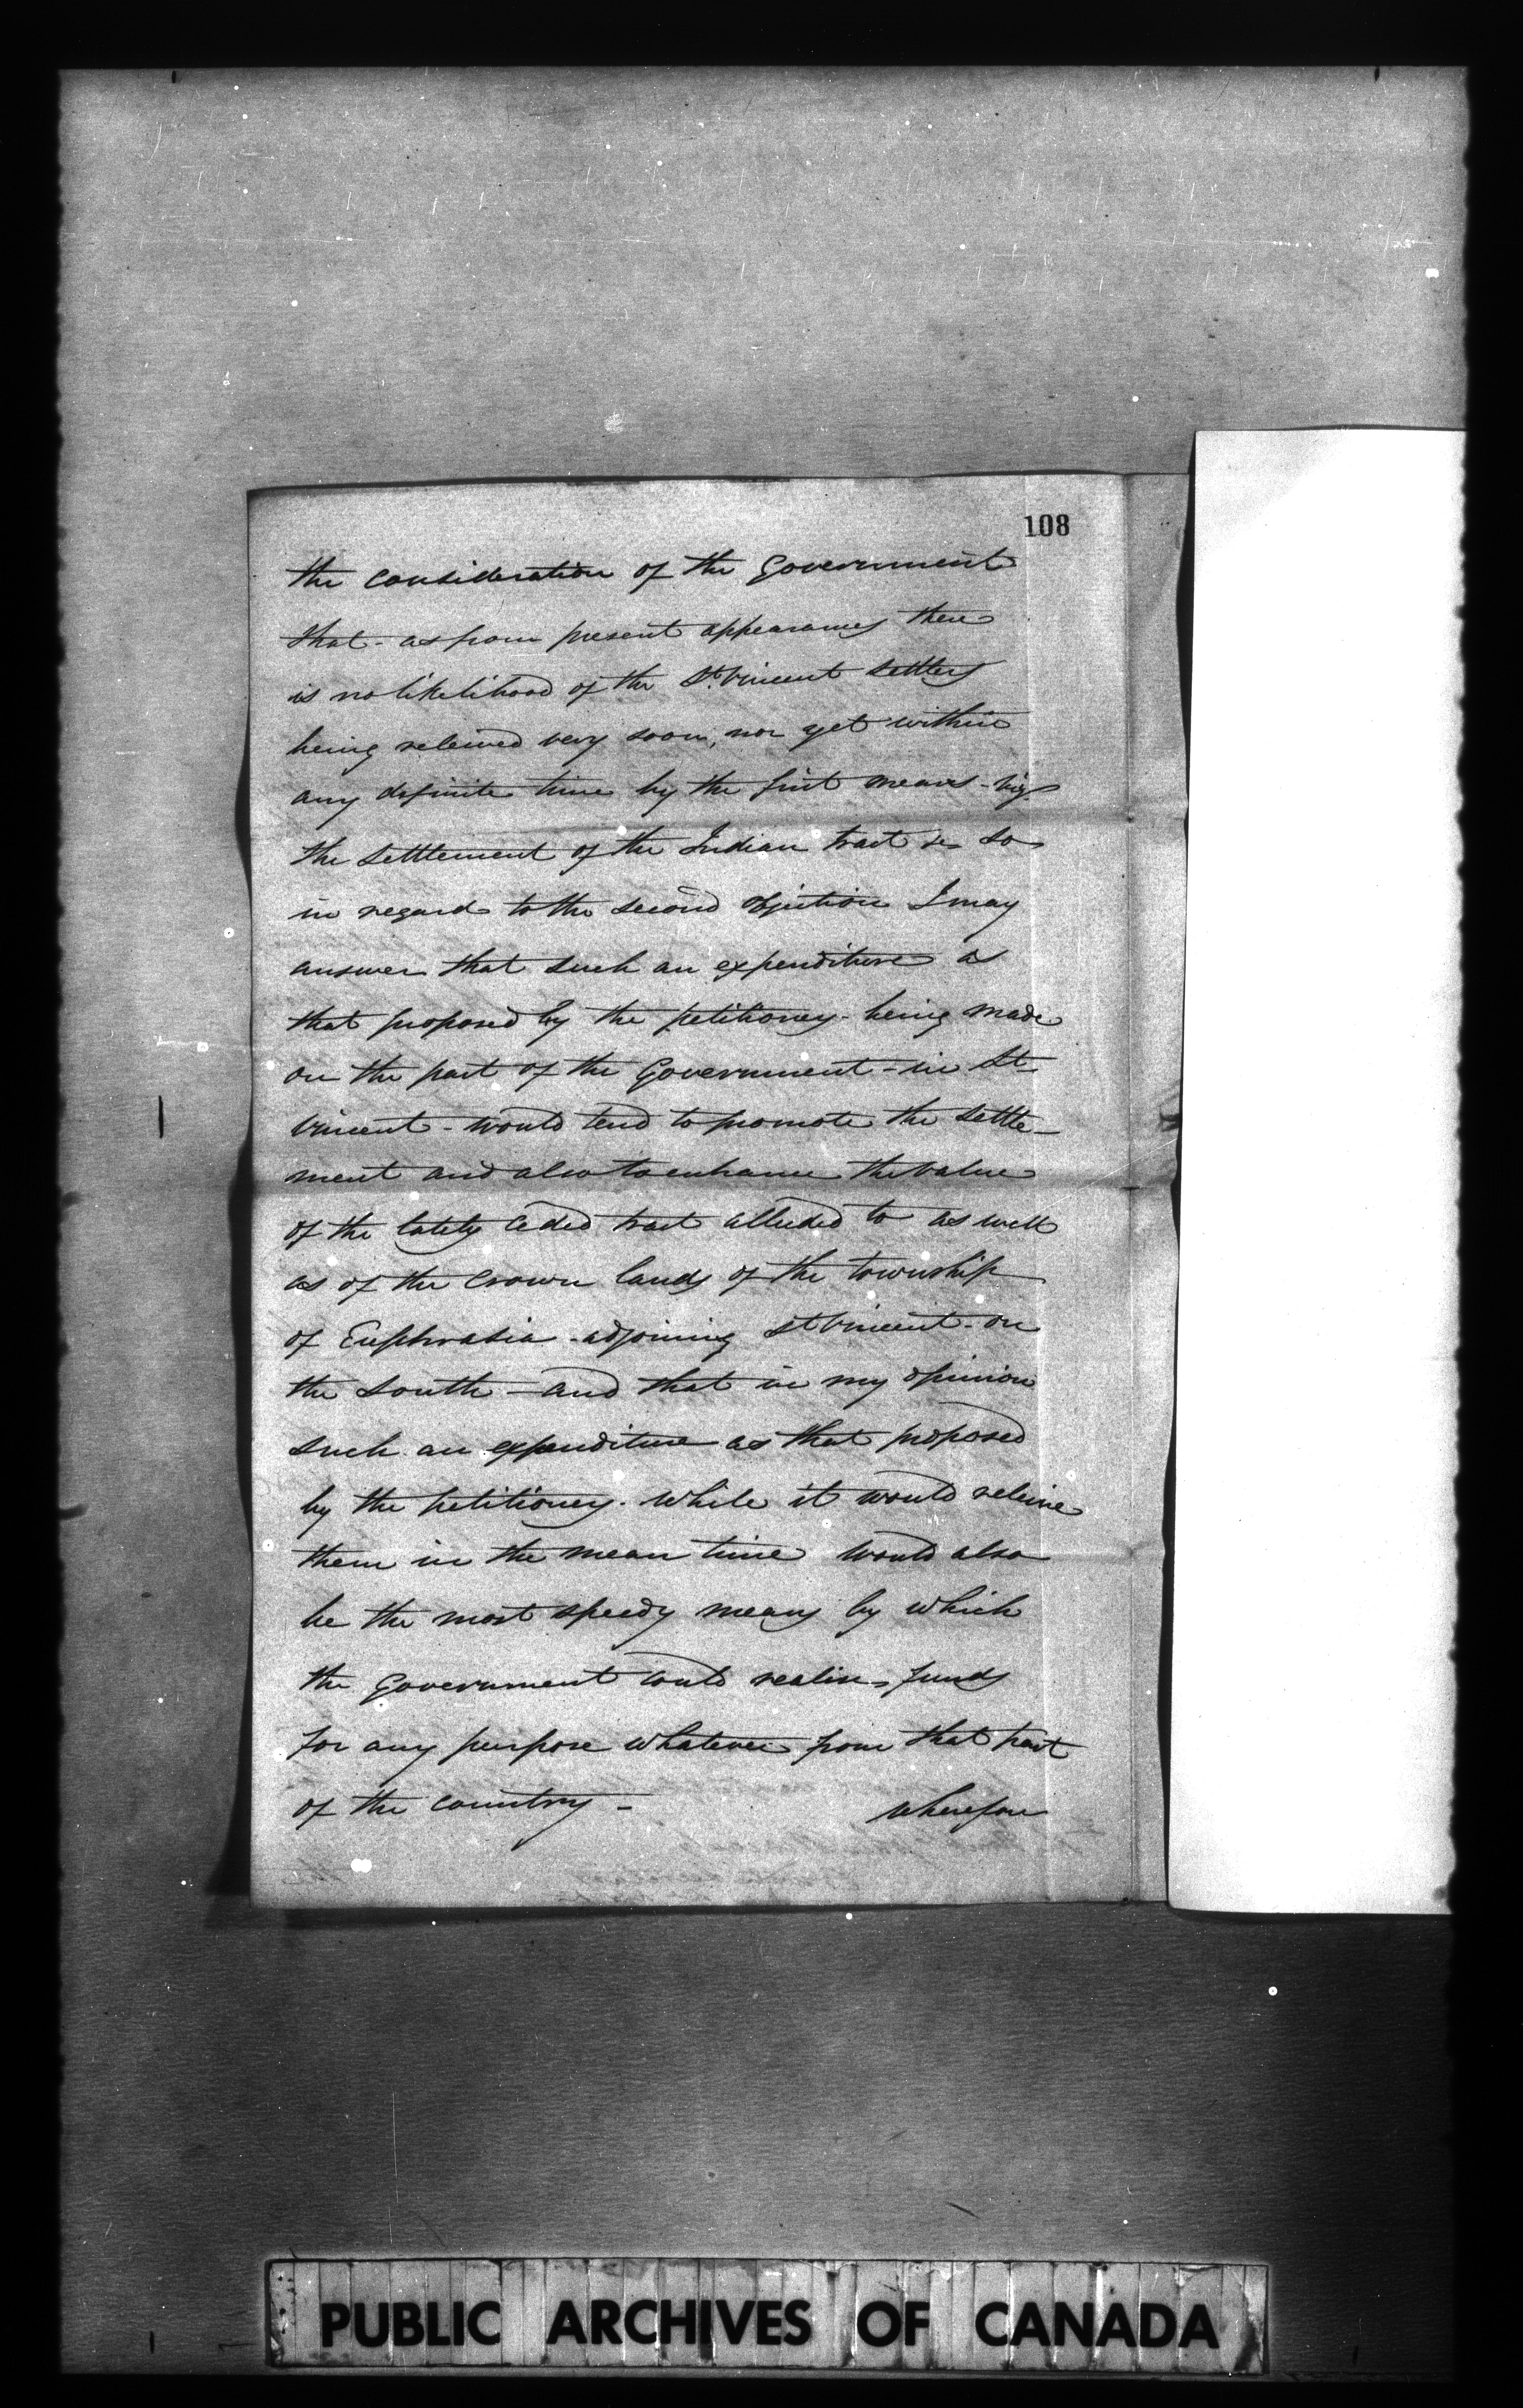 108
the consideration of the Government
that - as from present appearances there
is no likelihood of the St. Vincent settlers
being releived very soon, nor yet within
any definite time by the first means - viz
the settlement of the Indian tract so
in regard to the second objection I may
answer that such an expenditure as
that proposed by the petitioners - being made
on the part of the Government - in St
Vincent - would tend to promote the settle-
ment and also to enhance the value
of the lately ceded tract alluded to as well
as of the Crown lands of the township
of Euphrasia - adjoining St Vincent - on
the south - and that in my opinion
such an expenditure as that proposed
by the petitioners. While it would releive
them in the mean time would also
be the most speedy means by which
the Government could realise funds
for any purpose whatever from that part
of the country -
Wherefore
PUBLIC ARCHIVES OF CANADA